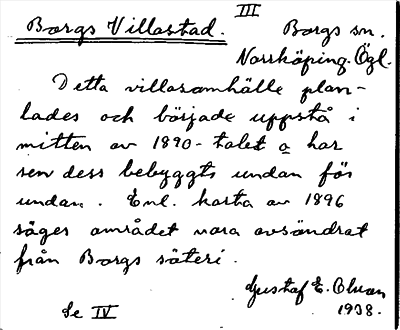 III
Borgs Villastad. Borgs sn.
Norrköping. Ögl.
Detta villasamhälle plan-
lades och började uppstå i
mitten av 1890-talet o har
sen dess bebyggts undan för
undan. Enl. karta av 1896
säges området vara avsöndrat
från Borgs säteri.
Gustaf E. Olson
1938.
Se IV